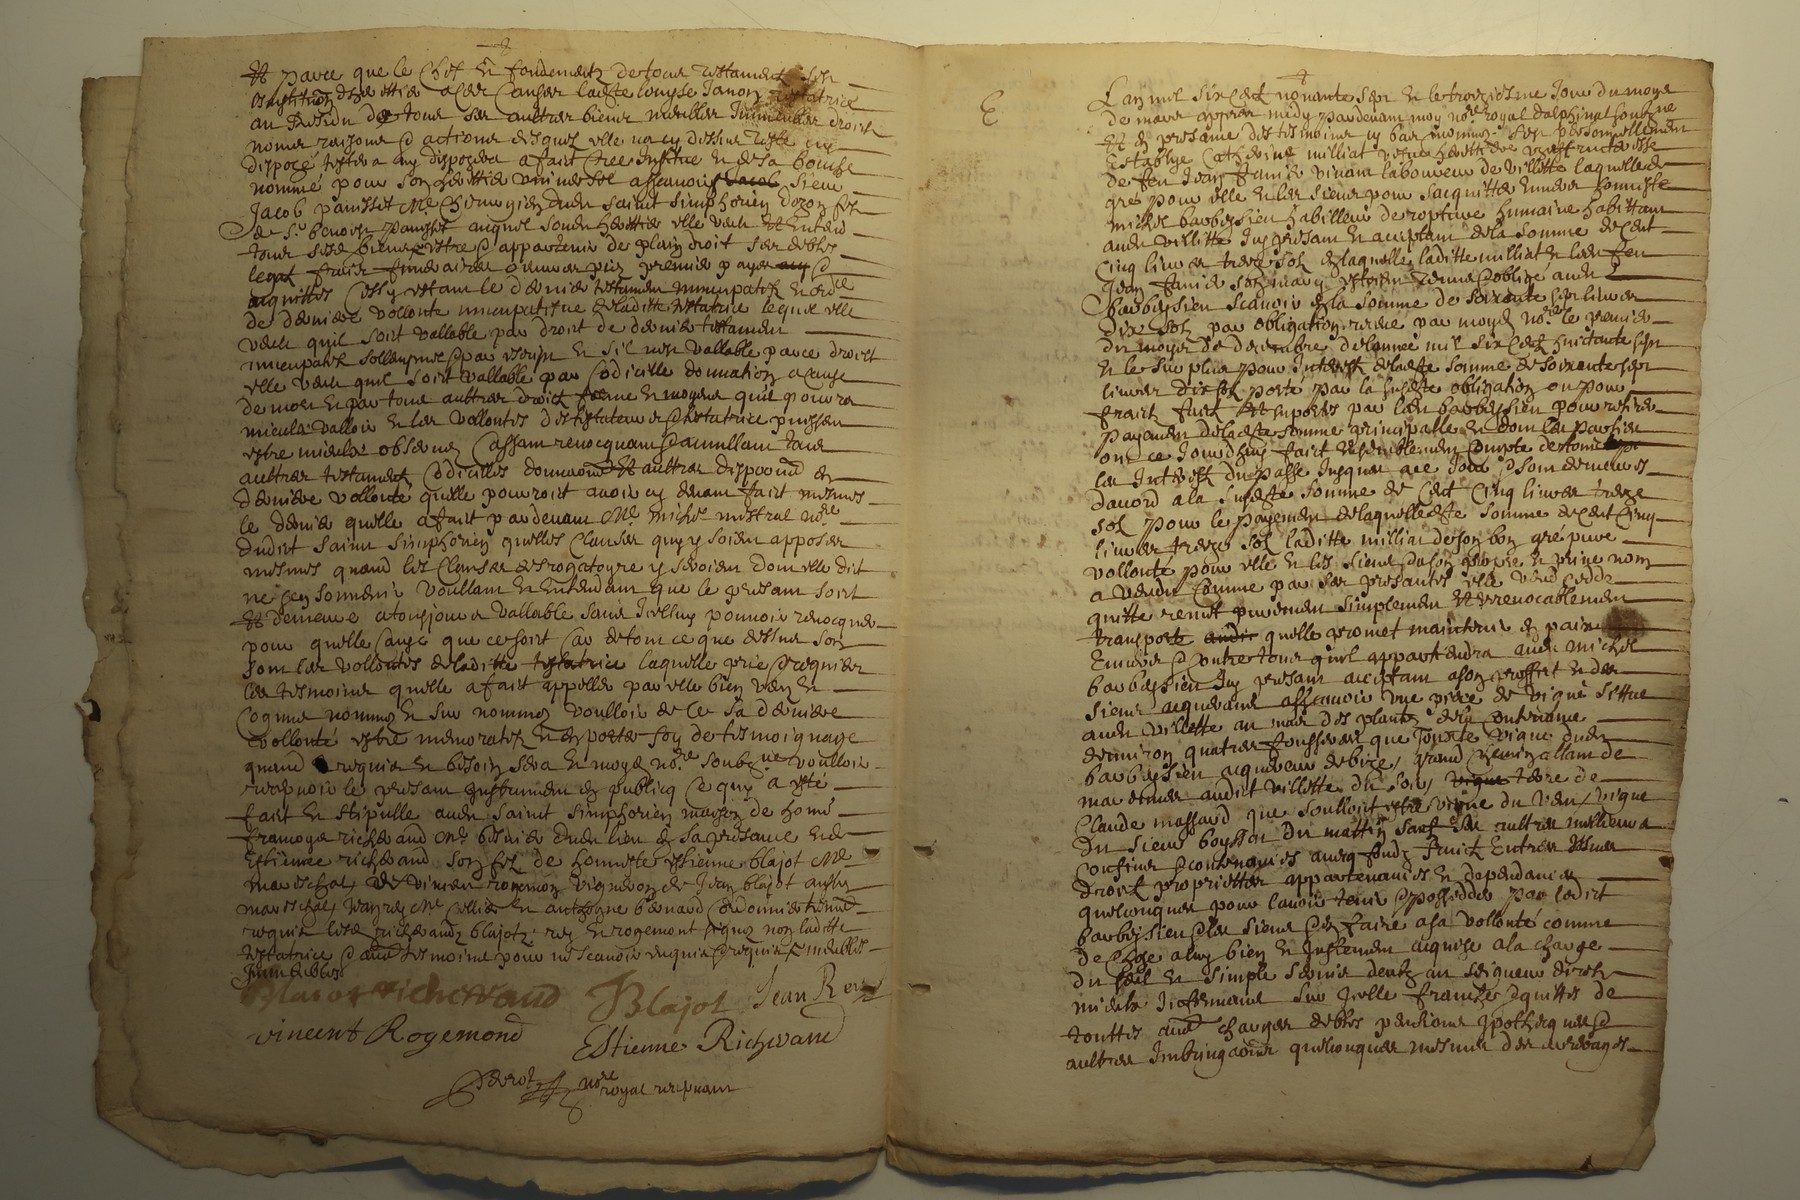 Et parce que le Chef et fondement de tout testament est
institution dheritier a ceste Cause ladicte louyse Janon testatrice
au Residu de tous ses aultres biens meubles Immeubles droicts
noms raisons & actions desquels elle na cy dessus teste ny
dispozé testera ny dispozera a fait cree institue et de sa bouche
nommé pour son heritier universel assavoir Sieur
Jacob panisset Me Chirurgien dud Saint Simphorien dozon fils
de Sr benoist panisset auquel sond heritier elle veut Et Entend
tous sesd biens estre & appartenir de plain droit ses debtes
legat fraix funeraires œuvres pies premier payes &
aquittes Cessy estant le dernier testament nuncupatif et ordre
de derniere vollonte nuncupative de laditte testatrice lequel elle
veut quil soit vallable par droit de dernier testament
nuncupatif sollempnel & par escript et sil nest vallable par ce droict
elle veut quil soit vallable par Codicille donnation a cause
de mort et par tous aultres droicts forme et moyens quil pourra
mieulx valloir et les vollontes des testateurs & testatrice puissent
estre mieulx observes Cassant revocquant & annullant tous
aultres testaments Codicilles donnations Et aultres dispositions de
derniere vollonte quelle pourroit avoir cy devant fait mesmes
le dernier quelle a fait pardevant Me michel mistral nore
dudit Saint Simphorien quelles Clauses quy y soient apposes
mesmes quand les Clauses desrogatoyre y seroient dont elle dit
ne sen souvenir voullant et Entendant que le present soit
Et demeure a tousjours vallable sans Icelluy pouvoir revocquer
pour quelle cause que ce soit Car de tout ce que dessus son
sont les vollontes de laditte testatrice laquelle prie & requier
les tesmoins quelle a fait appeller par elle bien veu et
Cognus nommes et sur nommes voulloir de Ce sa derniere
vollonté estre memoratif et en porter foy de tesmoignage
quand requis et besoin sera et moy nore soubzne voulloir
recepvoir le present Instrument en publicq Ce quy a esté
fait et stipulle aud Saint Simphorien mayson de home
francoys richerand Me dud lieu en sa presance et de
Estienne richerand son fils de honneste estienne blajot Me
mareschal de vincent rogemon vigneron de Jean blajot aussy
mareschal Me sellier et anthoyne bernard Cordonnier
requis lesd richerands blajotz rey et rogemont signes non laditte
testatrice & aud tesmoins pour ne scavoir enquis & requis
Immeubles
Blajot richerand Blajot Jean Rey
vincent Rogemond Estienne Richerand
nore
royal recepvant
L an mil six cent nonante sept et le troiziesme Jour du moys
de mars appres midy pardevant moy nore royal dalphinal soubzne
Et en presance des tesmoins cy bas nommes sest personnellement
establye Catherine milliat vefve heritiere usufructueresse
de feu Jean Janier vivant laboureur de villette laquelle de
gre pour elle et les siens pour sacquitter Envers honneste
michel barbessieu habilleur de ropture humaine habittant
aud villitte Icy present et aceptant de la somme de cent
Cinq livres treze solz en laquelle laditte milliat et led feu
Jean Janier son mary estoient tenus & obligé aud
barbessieu scavoir en la somme de soixante sept livres
dix solz par obligation recue par moyd nore le premier
du moys de decembre de lannée mil six cent huictante sept
et le sur plus pour Interest de ladte somme de soixante sept
livres dix solz porté par la susdte obligation ou pour
fraict Just Et suportes par led barbessieu pour retirer
payement de ladte somme principalle et dont les parties
ont ce Jourdhuy fait Ensemblement Compte de tous
les Interest du passe Jusques a ce Jour & sont demeures
dacord a la susdte somme de Cent Cinq livres treze
solz pour le payement de laquelle dte somme de cent Cinq
livres treze solz laditte milliat de son bon gré pure
vollonte pour elle et les siens du son propre et prive nom
a vendu Comme par ses presantes elle vend Cedde
quitte remet purement simplement Et irrevocablement
transporte quelle promet maintenir en paix
Envers & contre tous quil appartiendra aud michel
barbessieu Icy present aceptant a son proffit et des
siens acquereurs assavoir une piece de vigne sittue
aud villette au mas des plantes de la contenance
denviron quatre fousserees que Jouxte vigne dud
barbessieu acquereur de bize, grand chemin allant de
audit villette du soir, terre de
Claude massard que soulloit estre vigne du vent, vigne
du sieur boysson du mattin sauf ses aultres meilleurs
confins & contenances avecq fondz fruict Entrees Issues
droicts proprietes appartenances et dependances
quelconques pour lavoir tenir & posseder par ledit
barbessieu & les siens & en faire a sa vollonté comme
de chose a luy bien et Justement aquise a la charge
du et simple servis deubz au seigneur direct
milliat Icy fermant sur Icelle franche & quitte de
touttes aultres charges debtes pensions ypothecques &
aultres Imbringations quelconques mesmes des arreages